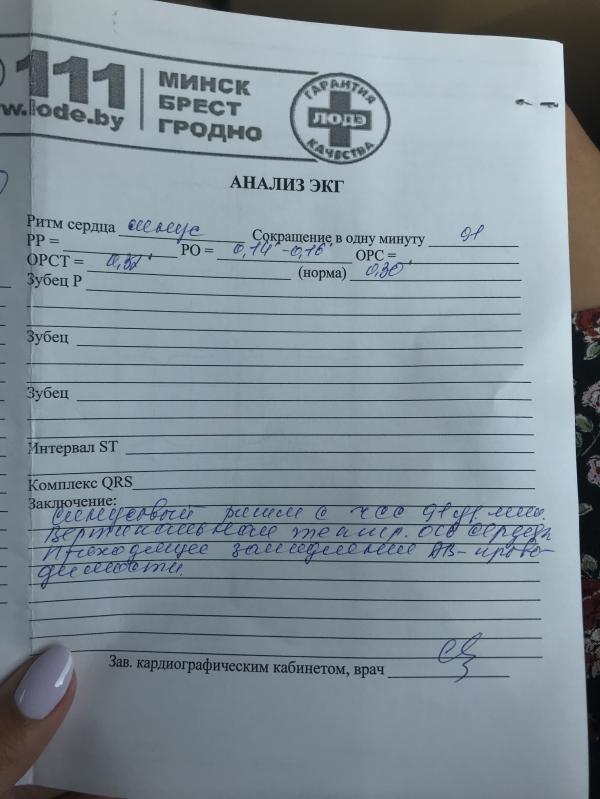 111
МИНСК
БРЕСТ
ГРОДНО
w.lode.by
ГАРАНТИЯ
ЛОДЭ
КАЧЕСТВА
АНАЛИЗ ЭКГ
Ритм сердца синус Сокращение в одну минуту 91
РР = РО = 0,14"-0,16" ОРС =
ОРСТ = 0,32" (норма) 0,30"
Зубец Р
Зубец
Зубец
Интервал ST
Комплекс QRS
Заключение:
Синусовый ритм с ЧСС 91 уд мин.
Вертикальная ось сердца
Преходящее замедление АВ-прово-
димости
Зав. кардиографическим кабинетом, врач